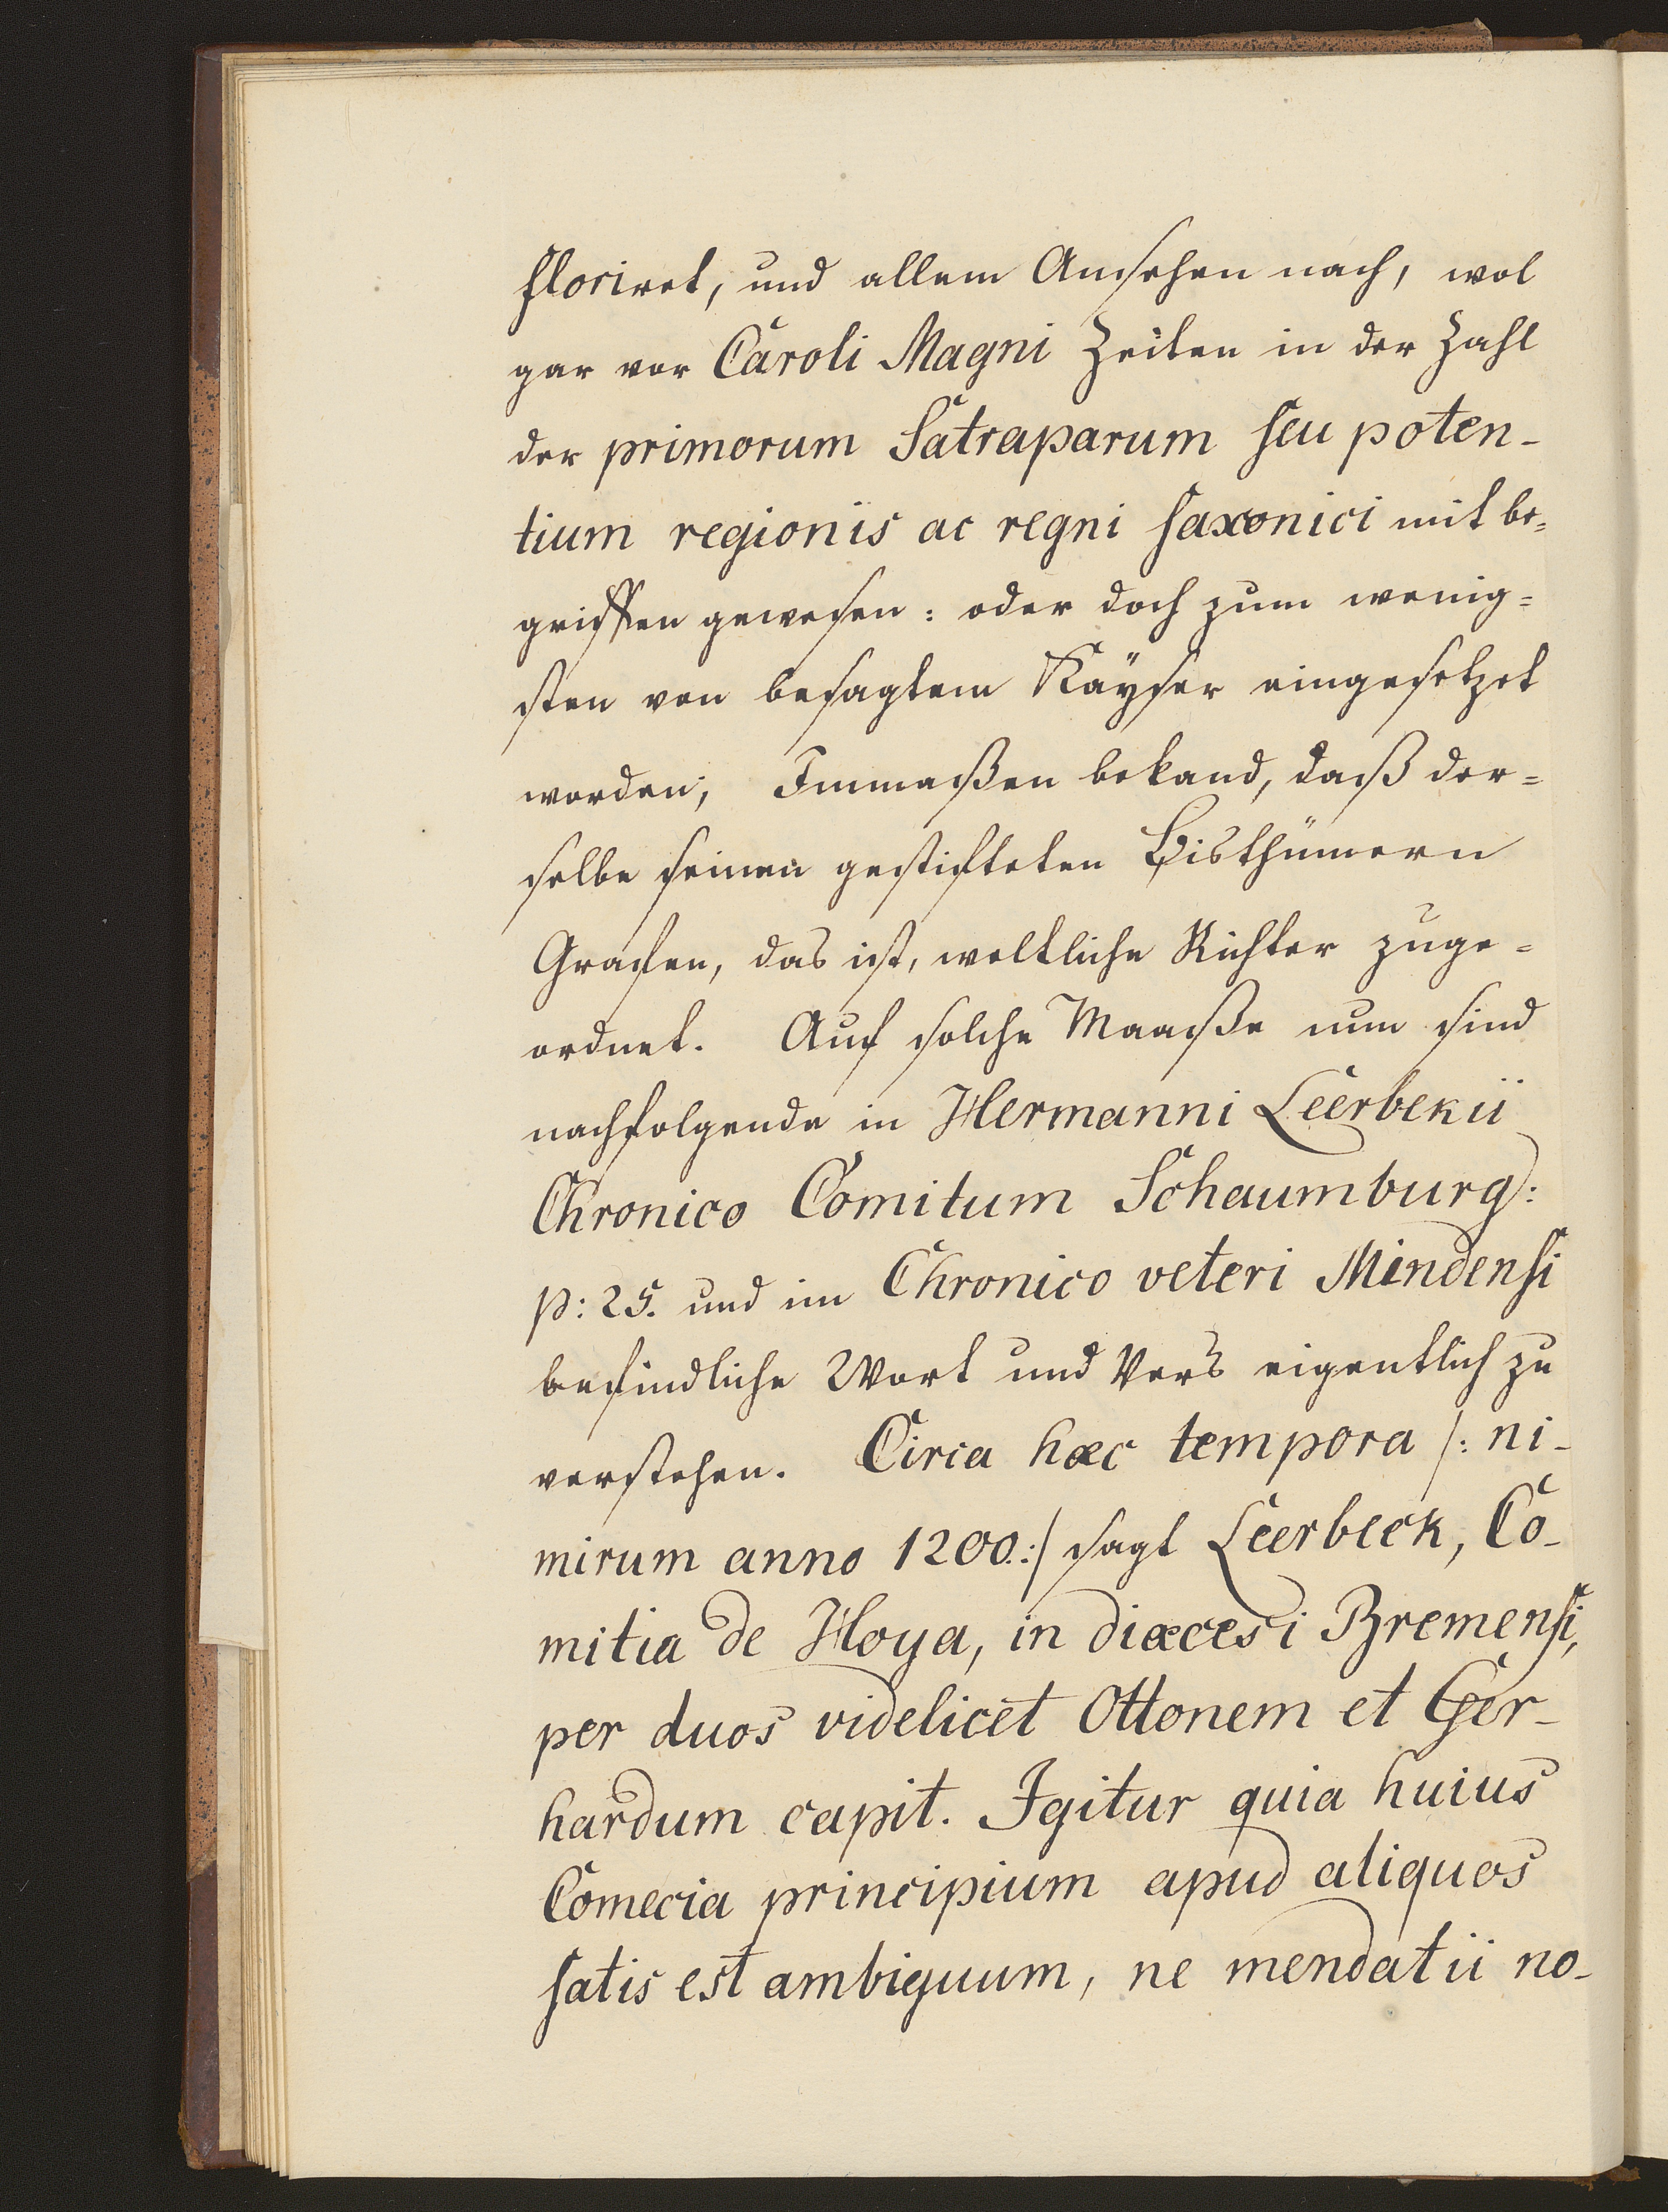 floriret, und allem Ansehen nach, wol
gar vor Caroli Magni Zeiten in der Zahl
der primorum Satraparum seu poten-
tium regionis ac regni saxonici mit be=
griffen gewesen: oder doch zum wenig=
sten von besagtem Käyser eingesetzet
worden; Immaßen bekand, daß der=
selbe seinen gestifteten Bisthümern
Grafen, das ist, weltliche Richter zuge=
ordnet. Auf solche Maaße nun sind
nachfolgende in Hermanni Leerbekii
Chronico Comitum Schaumburg:
p: 25. und im Chronico veteri Mindensi
befindliche Wort und Vers eigentlich zu
verstehen. Circa hæc tempora /: ni-
mirum anno 1200 :/ sagt Leerbeck, Co-
mitia de Hoya, in diœcesi Bremensi,
per duos videlicet Ottonem et Ger-
hardum capit. Igitur quia huius
Comecia principium apud aliquos
satis est ambiguum, ne mendatii no-